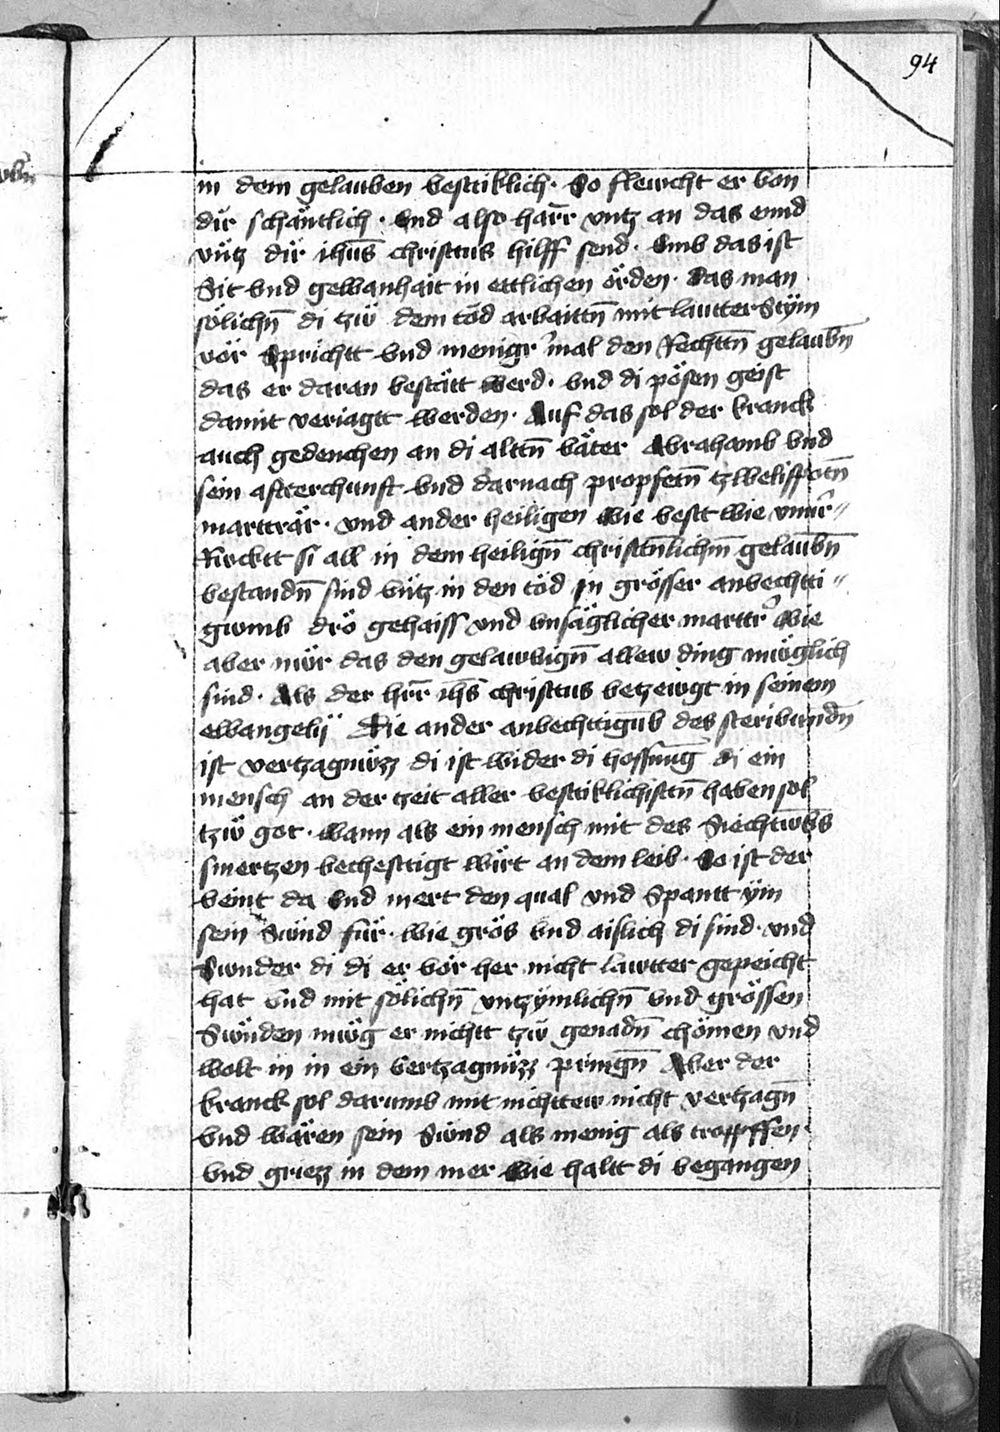 94
in dem gelauben vesttiklich · So fleuicht er von
dir schäntlich · vnd also harr̄ vntz an das ennd
vntz dir ihūs christus hilff send · Vmb das ist
Sit vnd gewanhait in ettlichen örden · Das man
sölichn̄ di tzw̄ dem töd arbaittn̄ mit lautter Stÿm
vör Sprichtt vnd menigr mal den Rechttn̄ gelaubn̄
das er daran bestätt werd · vnd di pösen geist
damit veriagtt werden · Auf das sol der kranck
auch gedenchen an di alttn̄ väter Abrahamb vnd
sein afterchunft vnd darnach propfetn̄ tzwelifpotn̄
martträr · vnd ander heiligen Wie vestt wie vnuer〃
Rucktt si all in dem heilign̄ christn̄lichm̄ gelaubn̄
bestandn̄ sind vntz in den töd in grösser anvechtti〃
gumb drö gehaiss vnd vnsäglicher marttr Wie
aber nür das den gelawbign̄ allew ding müglich
sind · Als der hrr̄ ihs̄ christus betzewgt in seinem
ewangelÿ Die ander anvechttigūb des steribundn̄
ist vertzagnüzz di ist wider di hoffunḡ di ein
mensch an der tzeit aller vesttiklichisttn̄ haben sol
tzw̄ got · wann als ein mensch mit des Siechtūbs
smertzen bechesttigt wirt an dem leib · So ist der
veint da vnd mert den qual vnd Spantt ÿm
sein Sünd für · wie grös vnd aislich di sind · vnd
Sunder di di er vör her nicht lawtter gepeicht
hat vnd mit sölichn̄ vntzÿmlichn̄ vnd grössen
Sünden müg er nichtt tzw̄ genadn̄ chömen vnd
wolt in in ein vertzagnüzz pringn̄ Aber der
kranck sol darumb mit nichttew nicht vertzagn̄
vnd wären sein Sünd als menig als tropffen
vnd griezz in dem mer Wie haltt di begangen